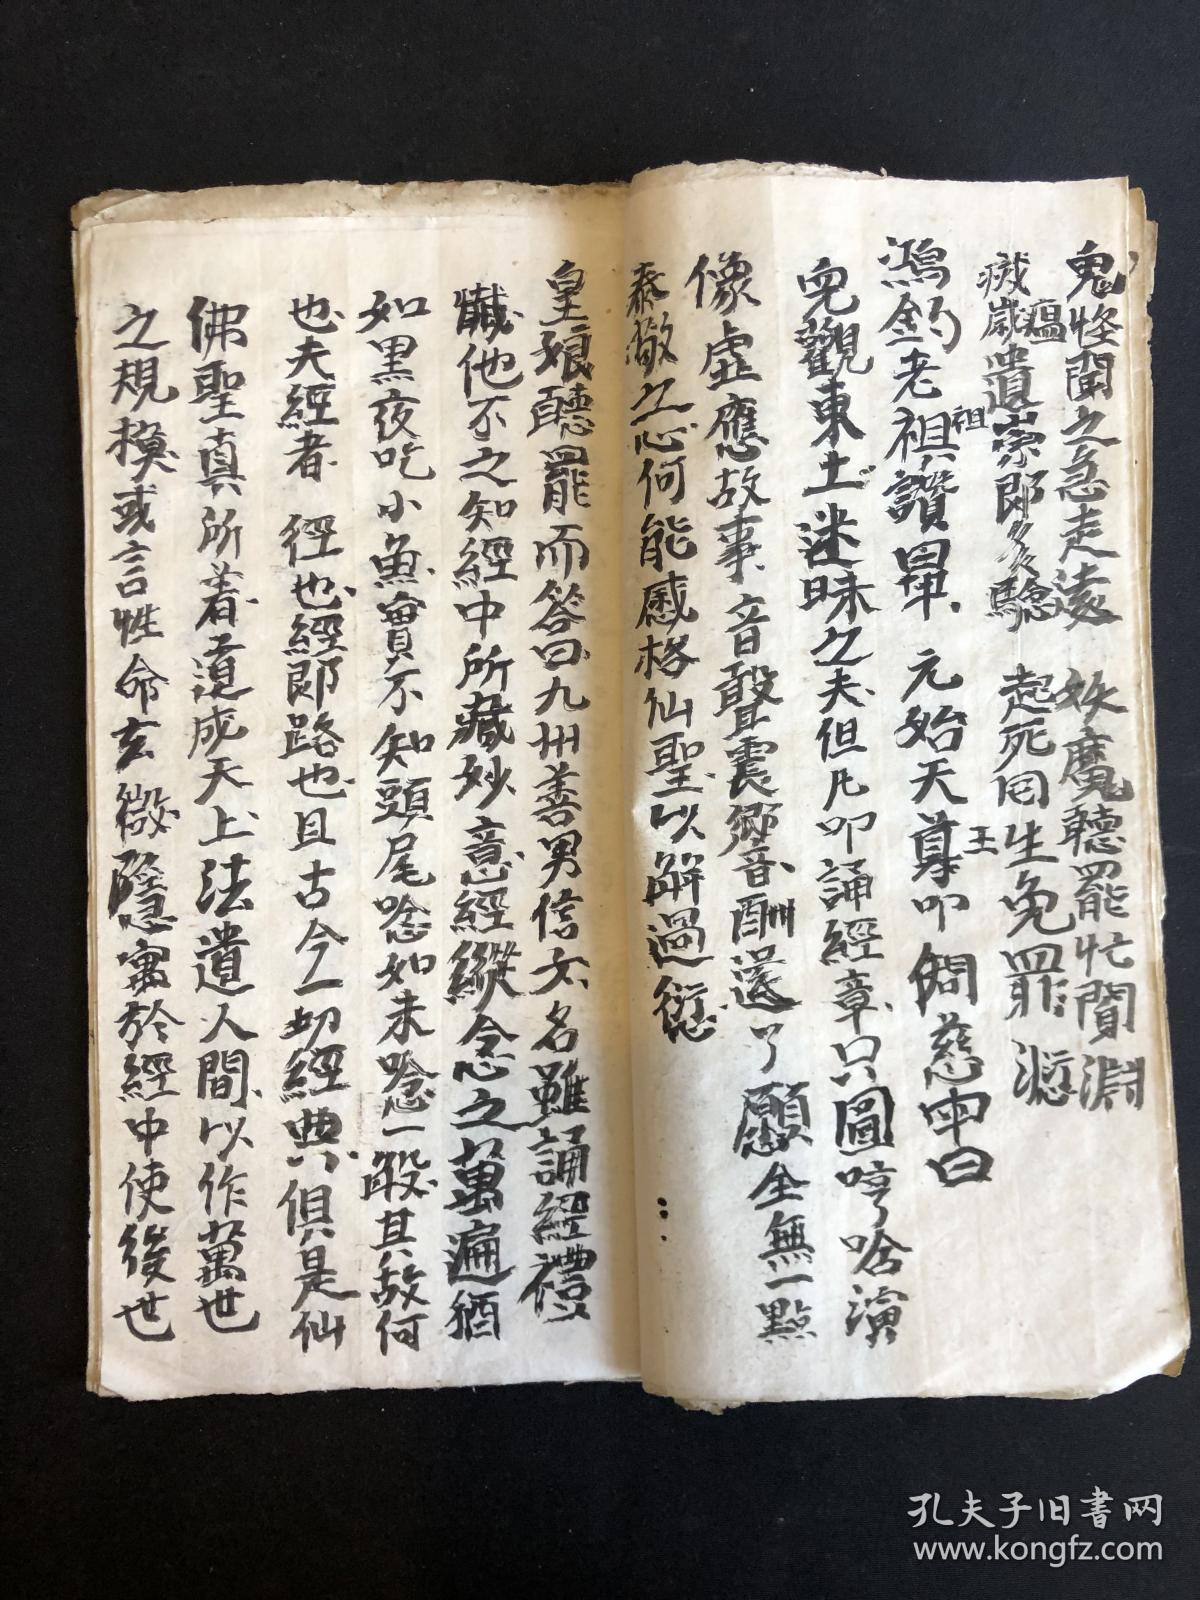 鬼怪聞之急走遠 妖魔聽罷忙閴淵
滅歲瘟遺宗郎多多驗 起死回生免罪愆
鴻鈞老祖祖讚畢 元始天尊王叩問慈甲曰
兒觀東土迷昧之夫但凡叩誦經章只圖哼唅演
像虚應故事音聲震響酬還了願全無一點
泰敬之心何能感格仙聖以解過愆
皇娘聽罷而答曰九州善男信女名雖誦經禮
懴他不之知經中所藏妙意經縱念之萬遍猶
如黑夜吃小魚實不知頭尾唸如未唸一般其故何
也夫經者 徑也經郎路也且古今一切經典俱是仙
佛聖真所着道成天上法遺人間以作萬世
之規模或言性命玄微隱寓於經中使後世
孔夫子旧书网
www.kongfz.com